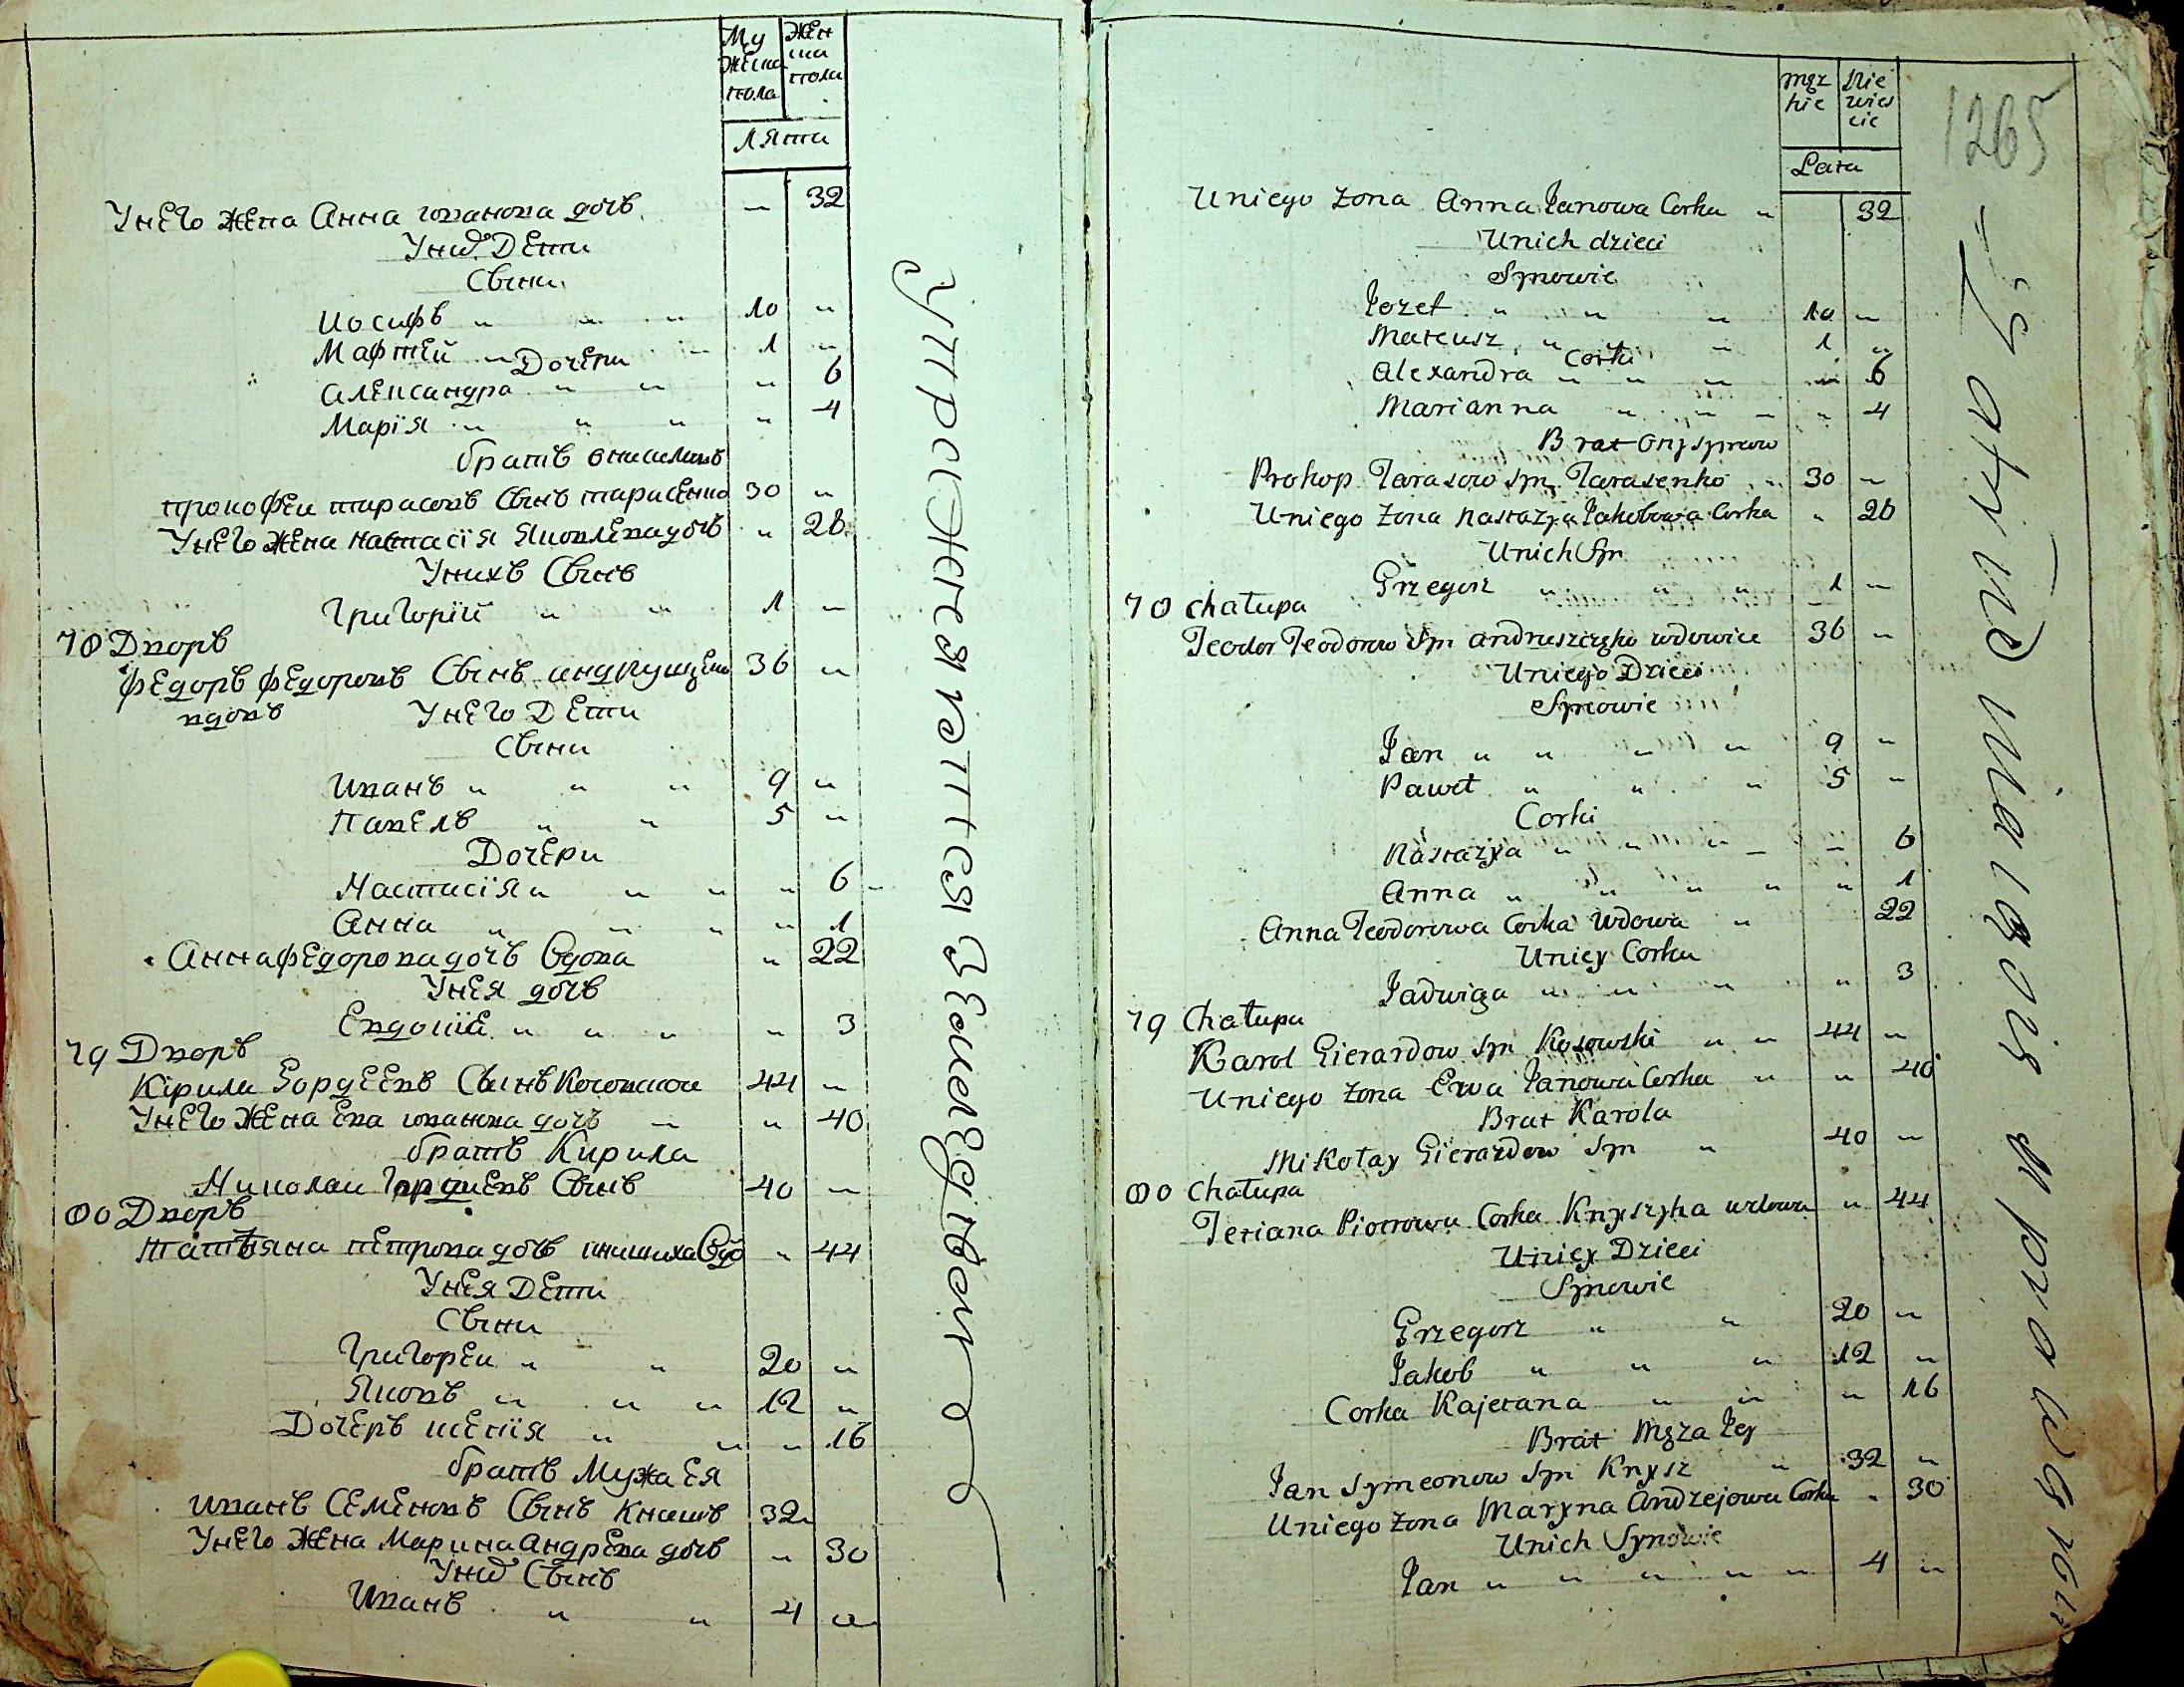 Му жеска пола
Жен ска пола
Лѣти
Унего жена Анна иванова дочъ „ 32
Уних Дети
Сыни
Иосифъ „ „ „ 10 „
Мафтей „ „ 1 „
Дочери
Александра „ „ „ 6
Марія „ „ „ „ 4
братъ
прокофеи тарасовъ Сынъ тарасенко 30 „
Унего жена настасія Яковлева дочъ „ 28
Унихъ Сынъ
Григорій „ „ 1 „
78 Дворъ
федоръ федоровъ Сынъ андрущенко 36 „
вдовъ Унего Дети
Сыни
Иванъ „ „ „ 9 „
Павелъ „ „ 5 „
Дочери
Настасія „ „ „ „ 6 „
Анна „ „ „ „ 1
Анна федорова дочъ Вдова „ 22
Унея дочъ
Евдокія „ „ „ „ 3
79 Дворъ
Кирила Гордеевъ Сынъ Косовской 44 „
Унего жена Ева иванова дочъ „ „ 40
братъ Кирила
Николаи Гордиевъ Сынъ 40 „
80 Дворъ
татъяна петрова дочъ книшиха Вдо „ 44
Унея Дети
Сыни
Григореи „ „ 20 „
Яковъ „ „ „ 12 „
Дочеръ ксенія „ „ „ 16
братъ Мужа Ея
иванъ Семеновъ Сынъ Книшъ 32 „
Унего жена Марина Андреева дочъ „ 30
Уних Сынъ
Иванъ „ „ 4 „
męz kie
Nie wies cie
Lata
1265
Uniego żona Anna Janowa Corka „ 32
Unich dzieci
Synowie
Jozef „ „ „ 10 „
Mateusz „ „ „ 1 „
Corki
Alexandra „ „ „ „ 6
Marianna „ „ „ „ 4
Brat
Prokop Tarasow syn Tarasenko „ 30 „
Uniego żona Nastazya Jakobowa Corka „ 28
Unich Syn
Grzegorz „ „ „ 1 „
78 chałupa
Teodor Teodorow syn andruszczęko wdowiec 36 „
Uniego Dzieci
Synowie
Jan „ „ „ „ 9 „
Paweł „ „ „ 5 „
Corki
Nastazya „ „ „ „ „ 6
Anna „ „ „ „ „ 1
Anna Teodorowa Corka wdowa „ 22
Uniey Corka
Jadwiga „ „ „ „ 3
79 Chałupa
Karol Gierardow syn Kosowski „ „ 44 „
Uniego żona Ewa Janowa Corka „ „ 40
Brat Karola
Mikołay Gierardow syn „ 40 „
80 Chałupa
Tetiana Piotrowa Corka Knyszyha wdowa „ 44
Uniey Dzieci
Synowie
Grzegorz „ „ 20 „
Jakob „ „ „ 12 „
Corka Kajetana „ „ „ 16
Brat Męża Jey
Jan Symeonow syn Knysz „ 32 „
Uniego żona Maryna Andrzejowa Corka „ 30
Unich Synowie
Jan „ „ „ „ „ 4 „